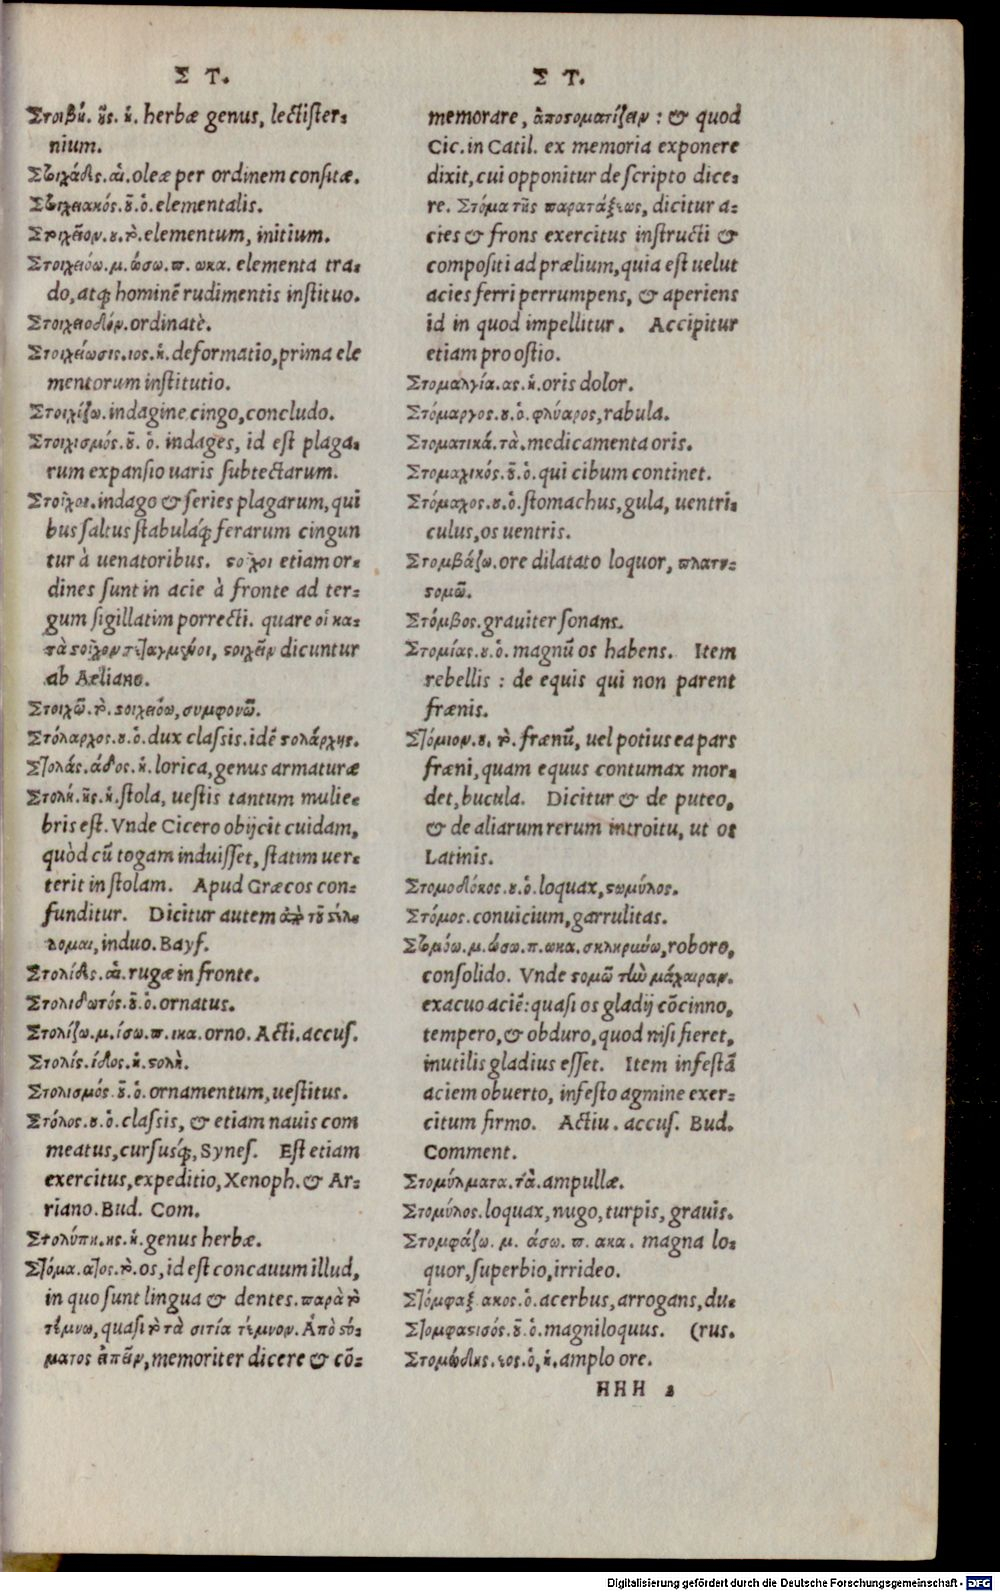 Σ Τ.
Στοιβή. ῆς. ἡ. herbæ genus, lectister-
nium.
Στοιχάδες. αἱ. oleæ per ordinem consitæ.
Στοιχειακός. οῦ. ὁ. elementalis.
Στοιχεῖον. ου. τὸ. elementum, initium.
Στοιχειόω. μ. ώσω. π. ωκα. elementa tra-
do, atq; hominē rudimentis instituo.
Στοιχειοδόν. ordinatè.
Στοιχείωσις. ιος. ἡ. deformatio, prima ele
mentorum institutio.
Στοιχίζω. indagine cingo, concludo.
Στοιχισμός. οῦ. ὁ. indages, id est plaga-
rum expansio uaris subtectarum.
Στοῖχοι. indago & series plagarum, qui
bus saltus stabuláq; ferarum cingun
tur à uenatoribus. στοῖχοι etiam or-
dines sunt in acie à fronte ad ter-
gum sigillatim porrecti. quare οἱ κα-
τὰ στοῖχον τεταγμένοι, στοιχεῖν dicuntur
ab Aeliano.
Στοιχῶ. τὸ. στοιχειόω, συμφονῶ.
Στόλαρχος. ου. ὁ. dux classis. idē στολάρχης.
Στολάς. άδος. ἡ. lorica, genus armaturæ
Στολή. ῆς. ἡ. stola, uestis tantum mulie-
bris est. Vnde Cicero obijcit cuidam,
quòd cū togam induisset, statim uer-
terit in stolam. Apud Græcos con-
funditur. Dicitur autem ἀπὸ τοῦ στέλ-
λομαι, induo. Bayf.
Στολίδες. αἱ. rugæ in fronte.
Στολιδωτός. οῦ. ὁ. ornatus.
Στολίζω. μ. ίσω. π. ικα. orno. Acti. accus.
Στολίς. ίδος. ἡ. στολὴ.
Στολισμός. οῦ. ὁ. ornamentum, uestitus.
Στόλος. ου. ὁ. classis, & etiam nauis com
meatus, cursusq́;, Synes. Est etiam
exercitus, expeditio, Xenoph. & Ar-
riano. Bud. Com.
Στολύπη. ης. ἡ. genus herbæ.
Στόμα. ατος. τὸ. os, id est concauum illud,
in quo sunt lingua & dentes. παρὰ τὸ
τέμνω, quasi τὸ τὰ σιτία τέμνον. Ἀπὸ στό-
ματος εἰπεῖν, memoriter dicere & cō-
Σ Τ.
memorare, ἀποστοματίζειν : & quod
Cic. in Catil. ex memoria exponere
dixit, cui opponitur de scripto dice-
re. Στόμα τῆς παρατάξεως, dicitur a-
cies & frons exercitus instructi &
compositi ad prælium, quia est uelut
acies ferri perrumpens, & aperiens
id in quod impellitur. Accipitur
etiam pro ostio.
Στομαλγία. ας. ἡ. oris dolor.
Στόμαργος. ου. ὁ. φλύαρος, rabula.
Στοματικά. τὰ. medicamenta oris.
Στομαχικός. οῦ. ὁ. qui cibum continet.
Στόμαχος. ου. ὁ. stomachus, gula, uentri-
culus, os uentris.
Στομβάζω. ore dilatato loquor, πλατυ-
στομῶ.
Στόμβος. grauiter sonans.
Στομίας. ου. ὁ. magnū os habens. Item
rebellis : de equis qui non parent
frænis.
Στόμιον. ου. τὸ. frænū, uel potius ea pars
fræni, quam equus contumax mor-
det, bucula. Dicitur & de puteo,
& de aliarum rerum introitu, ut os
Latinis.
Στομοδόκος. ου. ὁ. loquax, στωμύλος.
Στόμος. conuicium, garrulitas.
Στομόω. μ. ώσω. π. ωκα. σκληρύνω, roboro,
consolido. Vnde στομῶ τὴν μάχαιραν.
exacuo aciē: quasi os gladij cōcinno,
tempero, & obduro, quod nisi fieret,
inutilis gladius esset. Item infestā
aciem obuerto, infesto agmine exer-
citum firmo. Actiu. accus. Bud.
Comment.
Στομύλματα. τὰ. ampullæ.
Στομύλος. loquax, nugo, turpis, grauis.
Στομφάζω. μ. άσω. π. ακα. magna lo-
quor, superbio, irrideo.
Στόμφαξ ακος. ὁ. acerbus, arrogans, du-
Στομφαστός. οῦ. ὁ. magniloquus. (rus.
Στομώδης. εος. ὁ, ἡ. amplo ore.
HHH 2
Digitalisierung gefördert durch die Deutsche Forschungsgemeinschaft - DFG